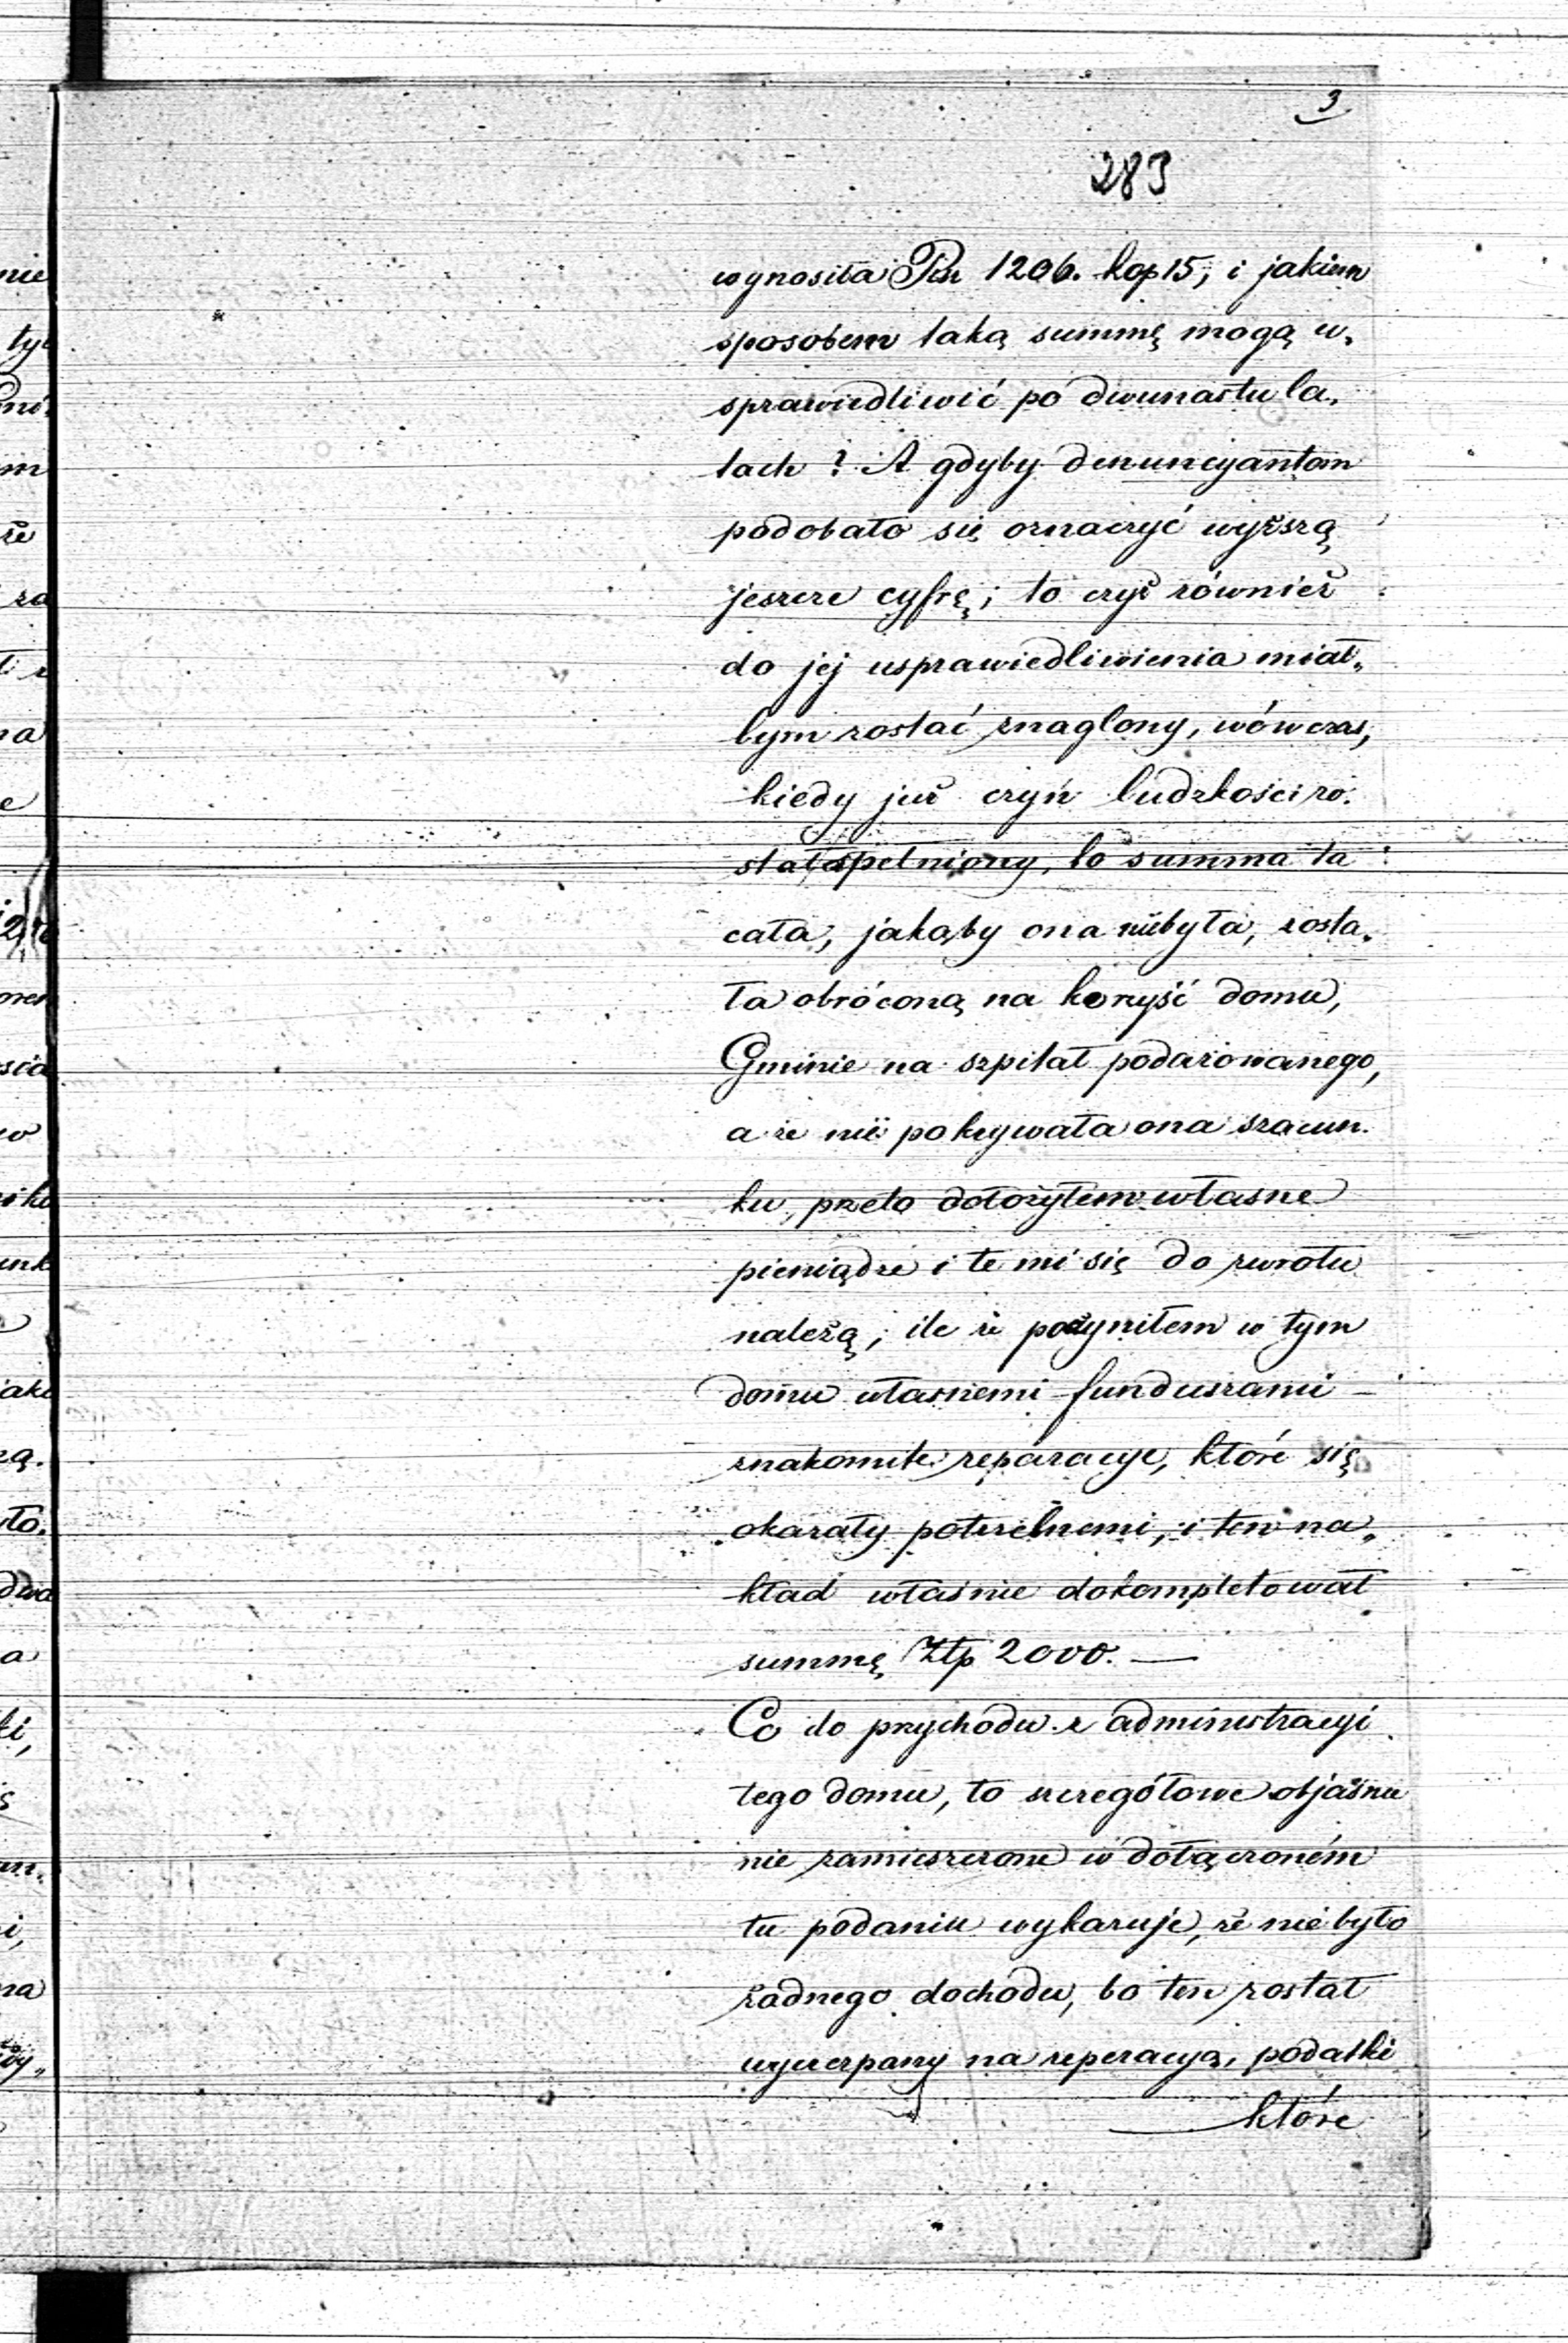 3
283
wynosiła Rsr 1206. kop 15, i jakiem
sposobem taką summę mogą u„
sprawiedliwić po dwunastu la„
tach? A gdyby denuncyantom
podobało się oznaczyć wyższą
jeszcze cyfrę; to czyż również
do jej usprawiedliwienia miał„
bym zostać znaglony, wówczas,
kiedy już czyn ludzkości zo„
stał spełniony, bo summa ta
cała, jakąby ona niebyła, zosta„
ła obróconą na korzyść domu,
Gminie na szpital podarowanego,
a że nie pokrywała ona szacun„
ku, przeto dołożyłem własne
pieniądze i te mi się do zwrotu
należą; ile że poczyniłem w tym
domu własnemi funduszami –
znakomite reparacye, które się
okazały potrzebnemi, i ten na„
kład właśnie dokompletował
summę Złp 2000. —
Co do przychodu z administracyi
tego domu, to szczegółowe objaśnie
nie zamieszczone w dołączoném
tu podaniu wykazuje, że nie było
żadnego dochodu, bo ten został
wyczerpany na reperacyą, podatki
które
nie